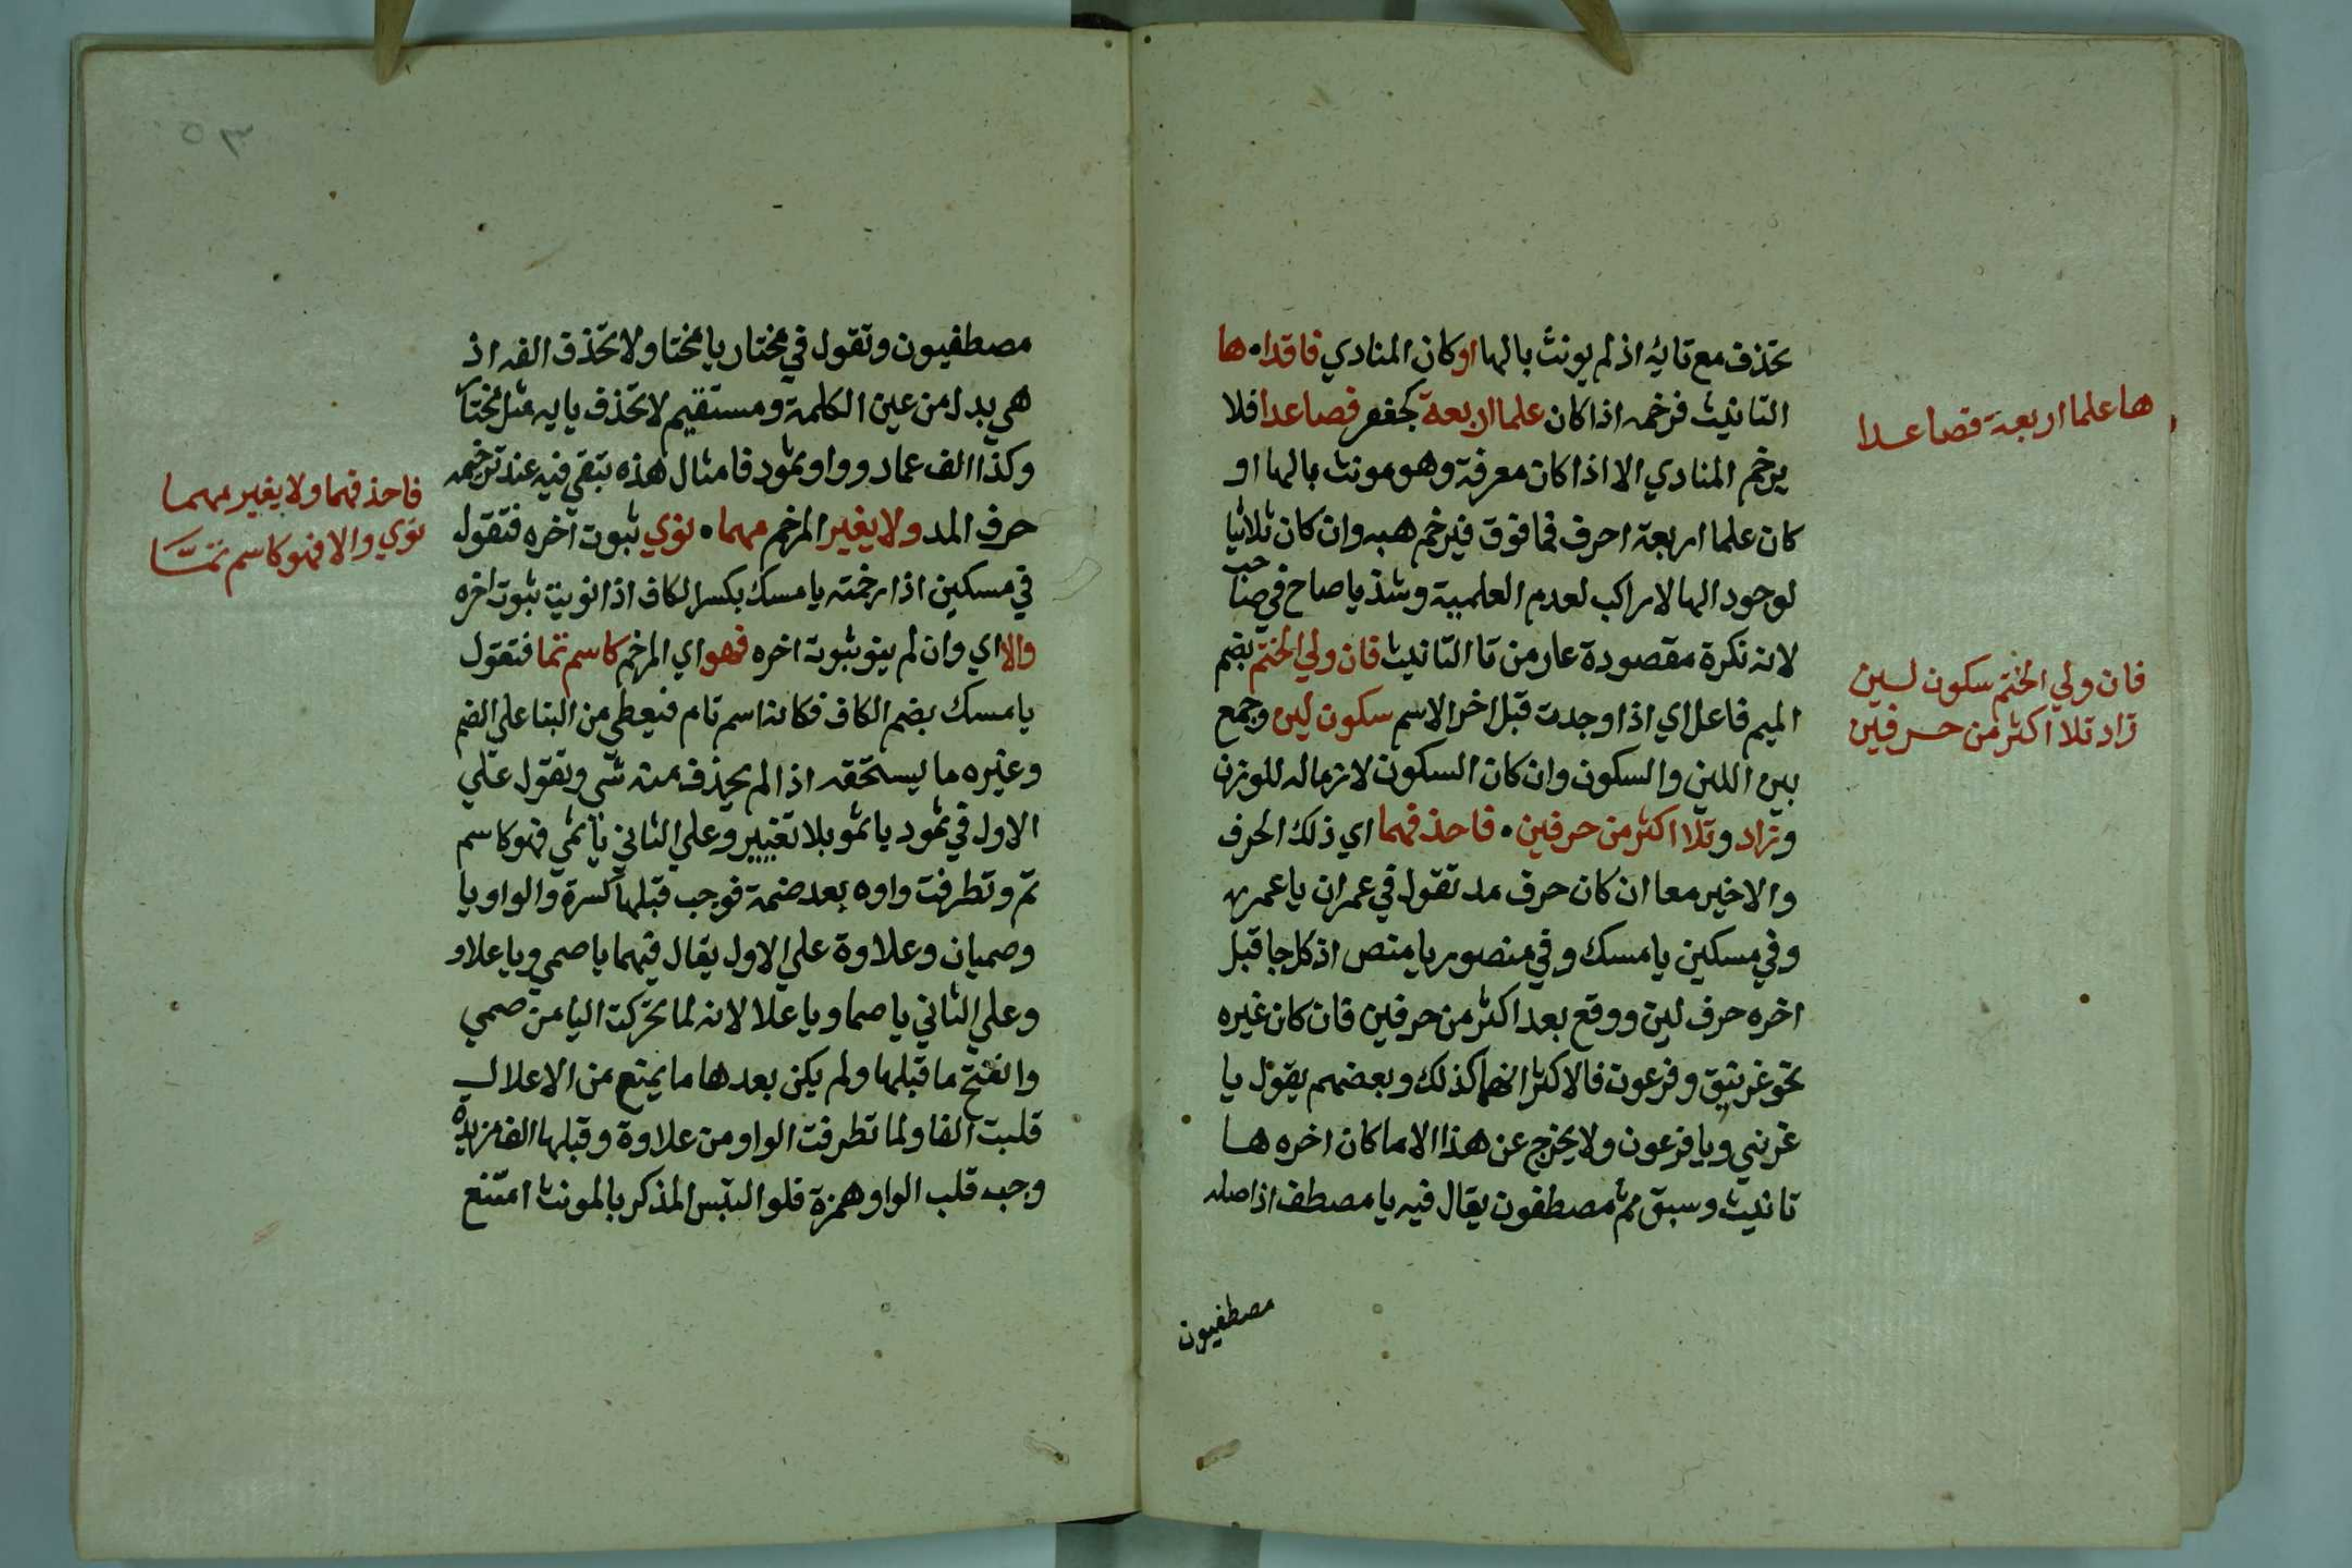 تحذف مع تايه اذ لم يونث بالها او كان المنادي فاقدا ها
التانيث فرخمه اذا كان علما اربعة كجعفر فصاعدا فلا
يرخم المنادي الا اذا كان معرفة وهو مونث بالها او
كان علما اربعة احرف فما فوق فيرخم هبه وان كان ثلاثيا
لوجود الها لا راكب لعدم العلمية وشذ يا صاح في صاحب
لانه نكرة مقصودة عار من تا التانيث فان ولي الختم بضم
الميم فاعل اي اذا وجدت قبل اخر الاسم سكون لين وجمع
بين اللين والسكون وان كان السكون لازما له للوزن
وزاد وتلا اكثر من حرفين فاحذفهما اي ذلك الحرف
والاخير معا ان كان حرف مد تقول في عمران يا عمر
وفي مسكين يا مسك وفي منصور يا منص اذ كل جا قبل
اخره حرف لين ووقع بعد اكثر من حرفين فان كان غيره
نحو غرنيق وفرعون فالاكثر انهما كذلك وبعضهم يقول يا
غرني ويا فرعون ولا يخرج عن هذا الا ما كان اخره ها
تانيث وسبق ثم مصطفون يقال فيه يا مصطف اذ اصله
مصطفيون
ها علما اربعة فصاعدا
فان ولي الختم سكون لين
زاد تلا اكثر من حرفين
٥٣
مصطفيون وتقول في مختار يا مختا ولا تحذف الفه اذ
هي بدل من عين الكلمة ومستقيم لا تحذف يايه مثل مختا
وكذا الف عماد وواو ثمود فامثال هذه يبقي فيه عند ترخيمه
حرف المد ولا يغير المرخم مهما نوي ثبوت اخره فتقول
في مسكين اذا رخمته يا مسك بكسر الكاف اذا نويت ثبوت اخره
والا اي وان لم ينو ثبوت اخره فهو اي المرخم كاسم تما فتقول
يا مسك بضم الكاف فكانه اسم تام فيعطي من البنا علي الضم
وغيره ما يستحقه اذا لم يحذف منه شي وتقول علي
الاول في ثمود يا ثمو بلا تغيير وعلي الثاني يا ثمي فهو كاسم
تم وتطرفت واوه بعد ضمة فوجب قبلها كسرة والواو يا
وصميان وعلاوة علي الاول يقال فيهما يا صمي ويا علاو
وعلي الثاني يا صما ويا علا لانه لما تحركت اليا من صمي
وانفتح ما قبلها ولم يكن بعدها ما يمنع من الاعلال
قلبت الفا ولما تطرفت الواو من علاوة وقبلها الف مزيدة
وجب قلب الواو همزة فلو التبس المذكر بالمونث امتنع
فاحذفهما ولا يغير مهما
نوي والا فهو كاسم تمتا